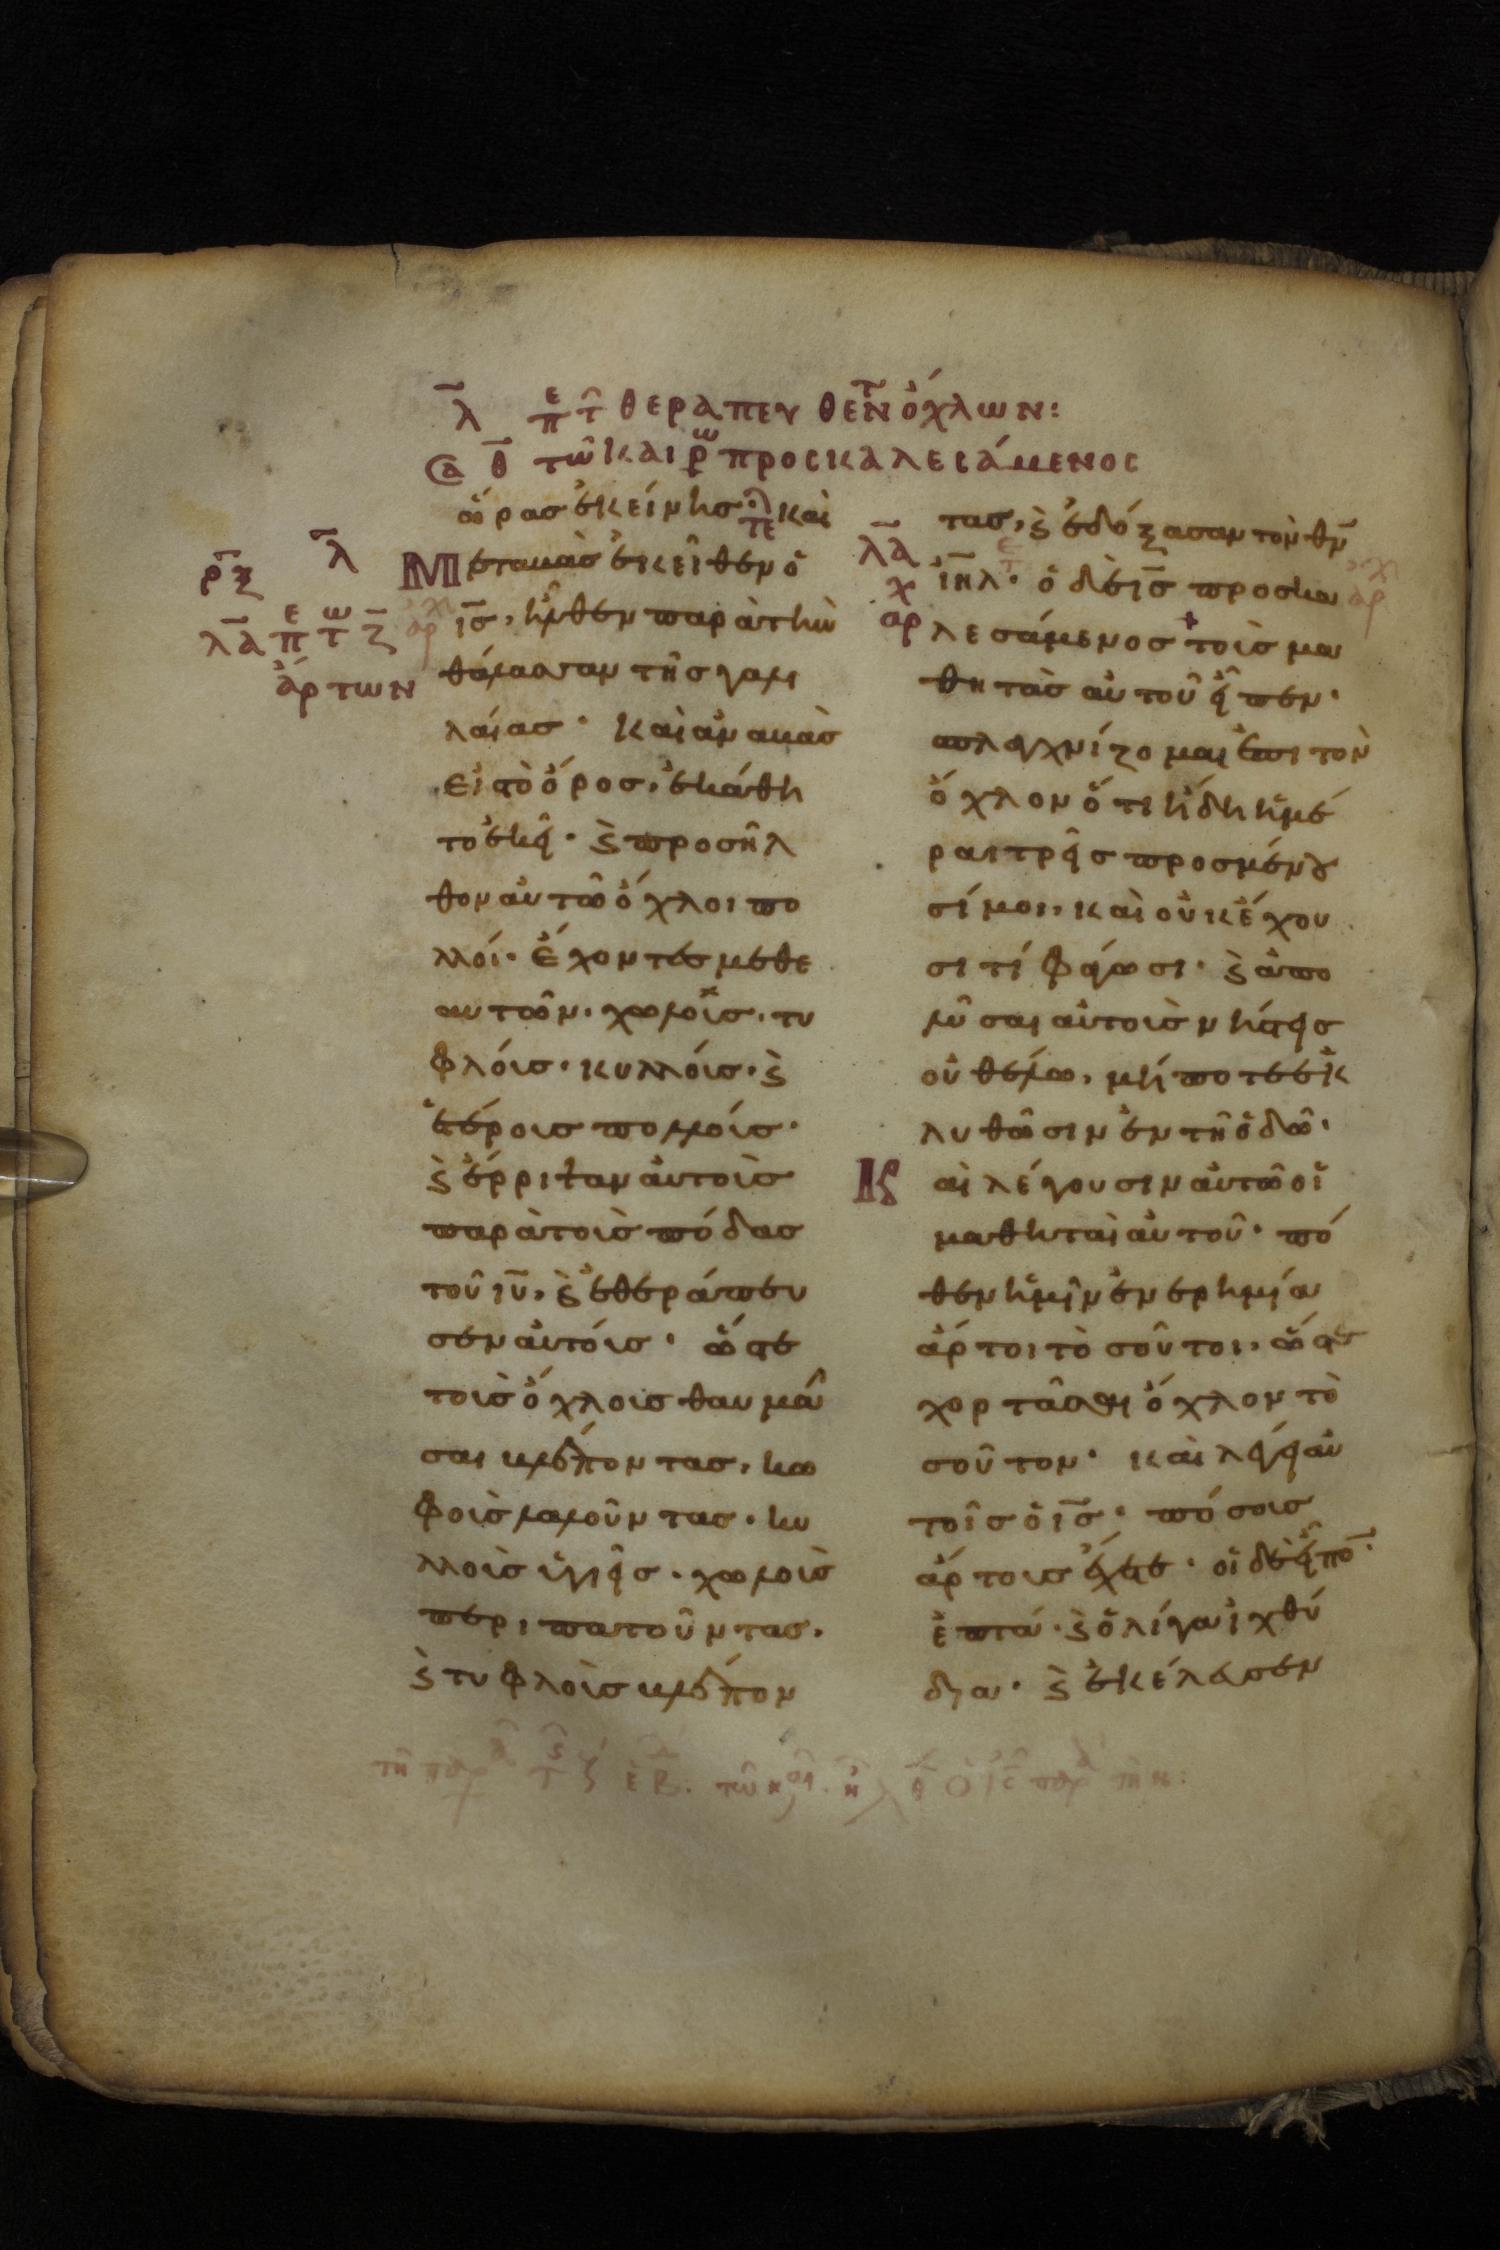 λ̅ πε τ̑ θεραπευθεντ ὄχλων:
Ϛα θ̅ τω̑ καιρω προσκαλεσάμενος
ὥρας ἐκείνης· τε καὶ
ρ̅ξ λ̅
Μεταβὰς ἐκεῖθεν ὁ
ι̅ς, ἦλθεν παρὰ τὴν
λ̅α πε τω ζ̅
ἄρτων
θάλασσαν τῆς γαλι
λαίας· καὶ ἀναβὰς
εἰς τὸ ὄρος, ἐκάθη
το ἐκεῖ· ϛ προσῆλ
θον αὐτῶ ὄχλοι πο
λλοί· ἔχοντες μεθ ε
αυτῶν· χωλοὺς· τυ
φλούς· κυλλούς· ϛ
ἑτέρους πολλούς·
ϛ ἔρριψαν αὐτοὺς
παρὰ τοὺς πόδας
τοῦ ι̅υ, ϛ ἐθεράπευ
σεν αὐτούς· ὥστε
τοὺς ὄχλους θαυμά
σαι βλέποντας, κω
φοὺς λαλοῦντας· κυ
λλοὺς ὑγιεῖς· χωλοὺς
περιπατοῦντας,
ϛ τυφλοὺς βλέπον
τας, ϛ ἐδόξασαν τὸν θ̅ν
λ̅α
ι̅ηλ· ὁ δὲ ι̅ς προσκα
χ
αρ
λεσάμενος τοὺς μα
θητὰς αὐτοῦ εἶπεν·
σπλαγχνίζομαι ἐπι τὸν
ὄχλον ὅτι ἤδη ἡμέ
ραι τρεῖς προσμένου
σί μοι, καὶ οὐκ ἔχου
σι τί φάγωσι· ϛ ἀπο
λῦσαι αὐτοὺς νήστεις
οὐ θέλω, μήποτε ἐκ
λυθῶσιν ἐν τῆ ὁδῶ·
Καὶ λέγουσιν αὐτῶ οἱ
μαθηταὶ αὐτοῦ· πό
θεν ἡμῖν ἐν ερημία
ἄρτοι τοσοῦτοι, ὥστε
χορτάσαι ὄχλον το
σοῦτον· καὶ λέγει αὐ
τοῖς ὁ ι̅ς· πόσους
ἄρτους ἔχετε· οἱ δὲ εἶπο̅·
ἑπτά· ϛ ὀλίγα ἰχθύ
δια· ϛ ἐκέλευσεν